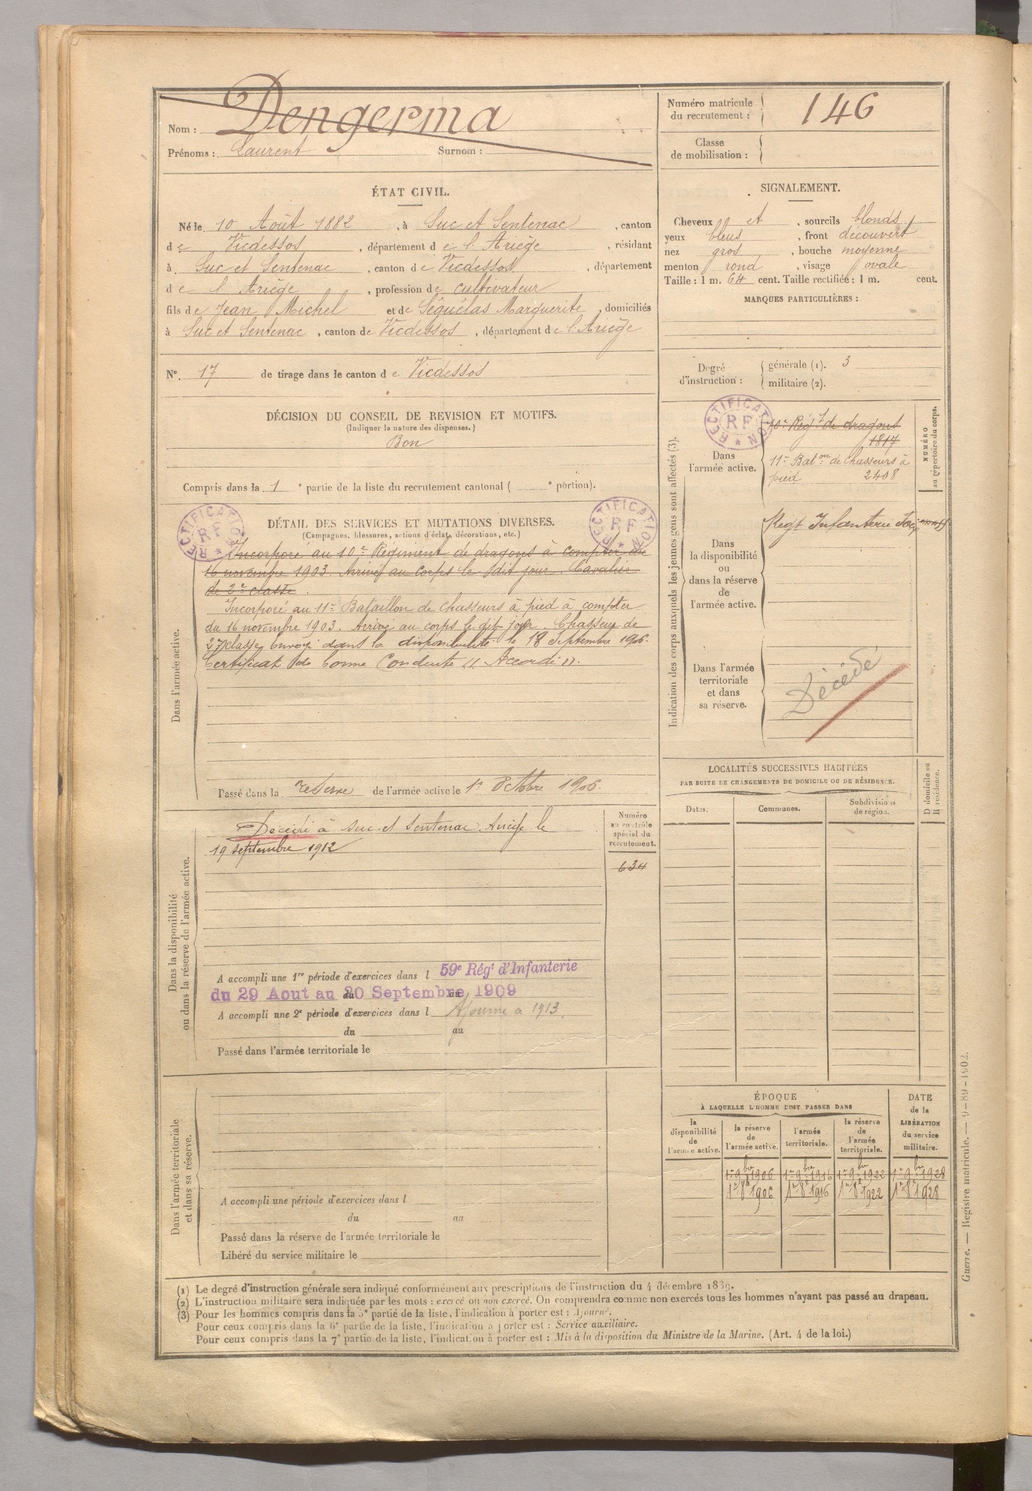 Nom : Dengerma
Prénoms : Laurent Surnom :
Numéro matricule du recrutement : 146
Classe de mobilisation :
ÉTAT CIVIL.
Né le 10 Août 1882, à Suc et Sentenac, canton
de Vicdessos, département de l'Ariège, résidant
à Suc et Sentenac, canton de Vicdessos, département
de l'Ariège, profession de cultivateur
fils de Jean Michel et de Séguélas Marguerite, domiciliés
à Suc et Sentenac, canton de Vicdessos, département de l'Ariège
N° 17 de tirage dans le canton de Vicdessos
SIGNALEMENT.
Cheveux et, sourcils blonds
yeux bleus, front découvert
nez gros, bouche moyenne
menton rond, visage ovale
Taille : 1 m. 64 cent. Taille rectifiée : 1 m. cent.
MARQUES PARTICULIÈRES :
Degré d'instruction : générale (1). 3
militaire (2).
DÉCISION DU CONSEIL DE REVISION ET MOTIFS.
(Indiquer la nature des dispenses.)
Bon
Compris dans la 1e partie de la liste du recrutement cantonal ( e portion).
DÉTAIL DES SERVICES ET MUTATIONS DIVERSES.
(Campagnes, blessures, actions d'éclat, décorations, etc.)
RECTIFICATION RF
RECTIFICATION RF
Dans l'armée active.
Incorporé au 10e Régiment de dragons à compter du
16 novembre 1903. Arrivé au corps le dit jour. Cavalier
de 2e classe.
Incorporé au 11e Bataillon de chasseurs à pied à compter
du 16 novembre 1903. Arrivé au corps le dit jour. Chasseur de
2e classe envoyé dans la disponibilité le 18 Septembre 1906.
Certificat de bonne Conduite "Accordé".
Passé dans la réserve de l'armée active le 1er Octobre 1906.
Indication des corps auxquels les jeunes gens sont affectés (3).
NUMÉRO au répertoire du corps.
RECTIFICATION RF
Dans l'armée active.
10e Régt de dragons
1817
11e Baton de Chasseurs à
pied 2408
Dans la disponibilité ou dans la réserve de l'armée active.
Régt Infanterie
Dans l'armée territoriale et dans sa réserve.
Décédé
Dans la disponibilité ou dans la réserve de l'armée active.
Décédé à Suc et Sentenac Ariège le
19 septembre 1912
Numéro au contrôle spécial du recrutement.
634
A accompli une 1re période d'exercices dans l 59e Régt d'Infanterie
du 29 Aout au 20 Septembre 1909
A accompli une 2e période d'exercices dans l Ajourné à 1913.
du au
Passé dans l'armée territoriale le
LOCALITÉS SUCCESSIVES HABITÉES
PAR SUITE DE CHANGEMENTS DE DOMICILE OU DE RÉSIDENCE.
Dates. Communes. Subdivision de région. D domicile ou R résidence.
Dans l'armée territoriale et dans sa réserve.
A accompli une période d'exercices dans l
du au
Passé dans la réserve de l'armée territoriale le
Libéré du service militaire le
ÉPOQUE
À LAQUELLE L'HOMME DOIT PASSER DANS
la disponibilité de l'armée active. la réserve de l'armée active. l'armée territoriale. la réserve de l'armée territoriale.
DATE de la LIBÉRATION du service militaire.
1er 9bre 1906 1er 9bre 1916 1er 9bre 1922 1er 9bre 1928
1er 8bre 1906 1er 8bre 1916 1er 8bre 1922 1er 8bre 1928
(1) Le degré d'instruction générale sera indiqué conformément aux prescriptions de l'instruction du 4 décembre 1889.
(2) L'instruction militaire sera indiquée par les mots : exercé ou non exercé. On comprendra comme non exercés tous les hommes n'ayant pas passé au drapeau.
(3) Pour les hommes compris dans la 5e partie de la liste, l'indication à porter est : Ajourné.
Pour ceux compris dans la 6e partie de la liste, l'indication à porter est : Service auxiliaire.
Pour ceux compris dans la 7e partie de la liste, l'indication à porter est : Mis à la disposition du Ministre de la Marine. (Art. 4 de la loi.)
Guerre. — Registre matricule. — 9-89-1902.